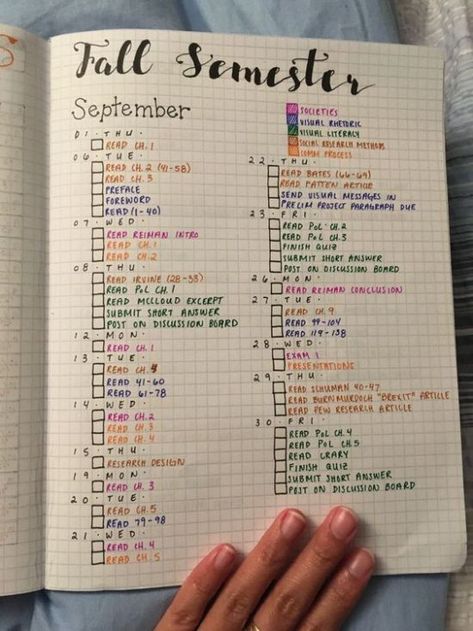 Fall Semester
September
01 · THU ·
READ CH. 1
06 · TUE ·
READ CH. 2 (41-58)
READ CH. 3
PREFACE
FOREWORD
READ (1-40)
07 · WED ·
READ REIMAN INTRO
READ CH. 1
READ CH. 2
08 · THU ·
READ IRVINE (28-33)
READ POL CH. 1
READ MCCLOUD EXCERPT
SUBMIT SHORT ANSWER
POST ON DISCUSSION BOARD
12 · MON ·
READ CH. 1
13 · TUE ·
READ CH.
READ 41-60
READ 61-78
14 · WED ·
READ CH. 2
READ CH. 3
READ CH. 4
15 · THU ·
RESEARCH DESIGN
19 · MON ·
READ CH. 3
20 · TUE ·
READ CH. 5
READ 79-98
21 · WED ·
READ CH. 4
READ CH. 5
SOCIETIES
VISUAL RHETORIC
VISUAL LITERACY
SOCIAL RESEARCH METHODS
COMM PROCESS
22 · THU ·
READ BATES (66-69)
READ PATTEN ARTICLE
SEND VISUAL MESSAGES IN
PRELIM PROJECT PARAGRAPH DUE
23 · FRI ·
READ POL CH. 2
READ POL CH. 3
FINISH QUIZ
SUBMIT SHORT ANSWER
POST ON DISCUSSION BOARD
26 · MON ·
READ REIMAN CONCLUSION
27 · TUE ·
READ CH. 9
READ 99-104
READ 119-138
28 · WED ·
EXAM 1
PRESENTATIONS
29 · THU ·
READ SCHUMAN 40-47
READ BURN MURDOCH "BREXIT" ARTICLE
READ PEW RESEARCH ARTICLE
30 · FRI ·
READ POL CH. 4
READ POL CH. 5
READ CRARY
FINISH QUIZ
SUBMIT SHORT ANSWER
POST ON DISCUSSION BOARD